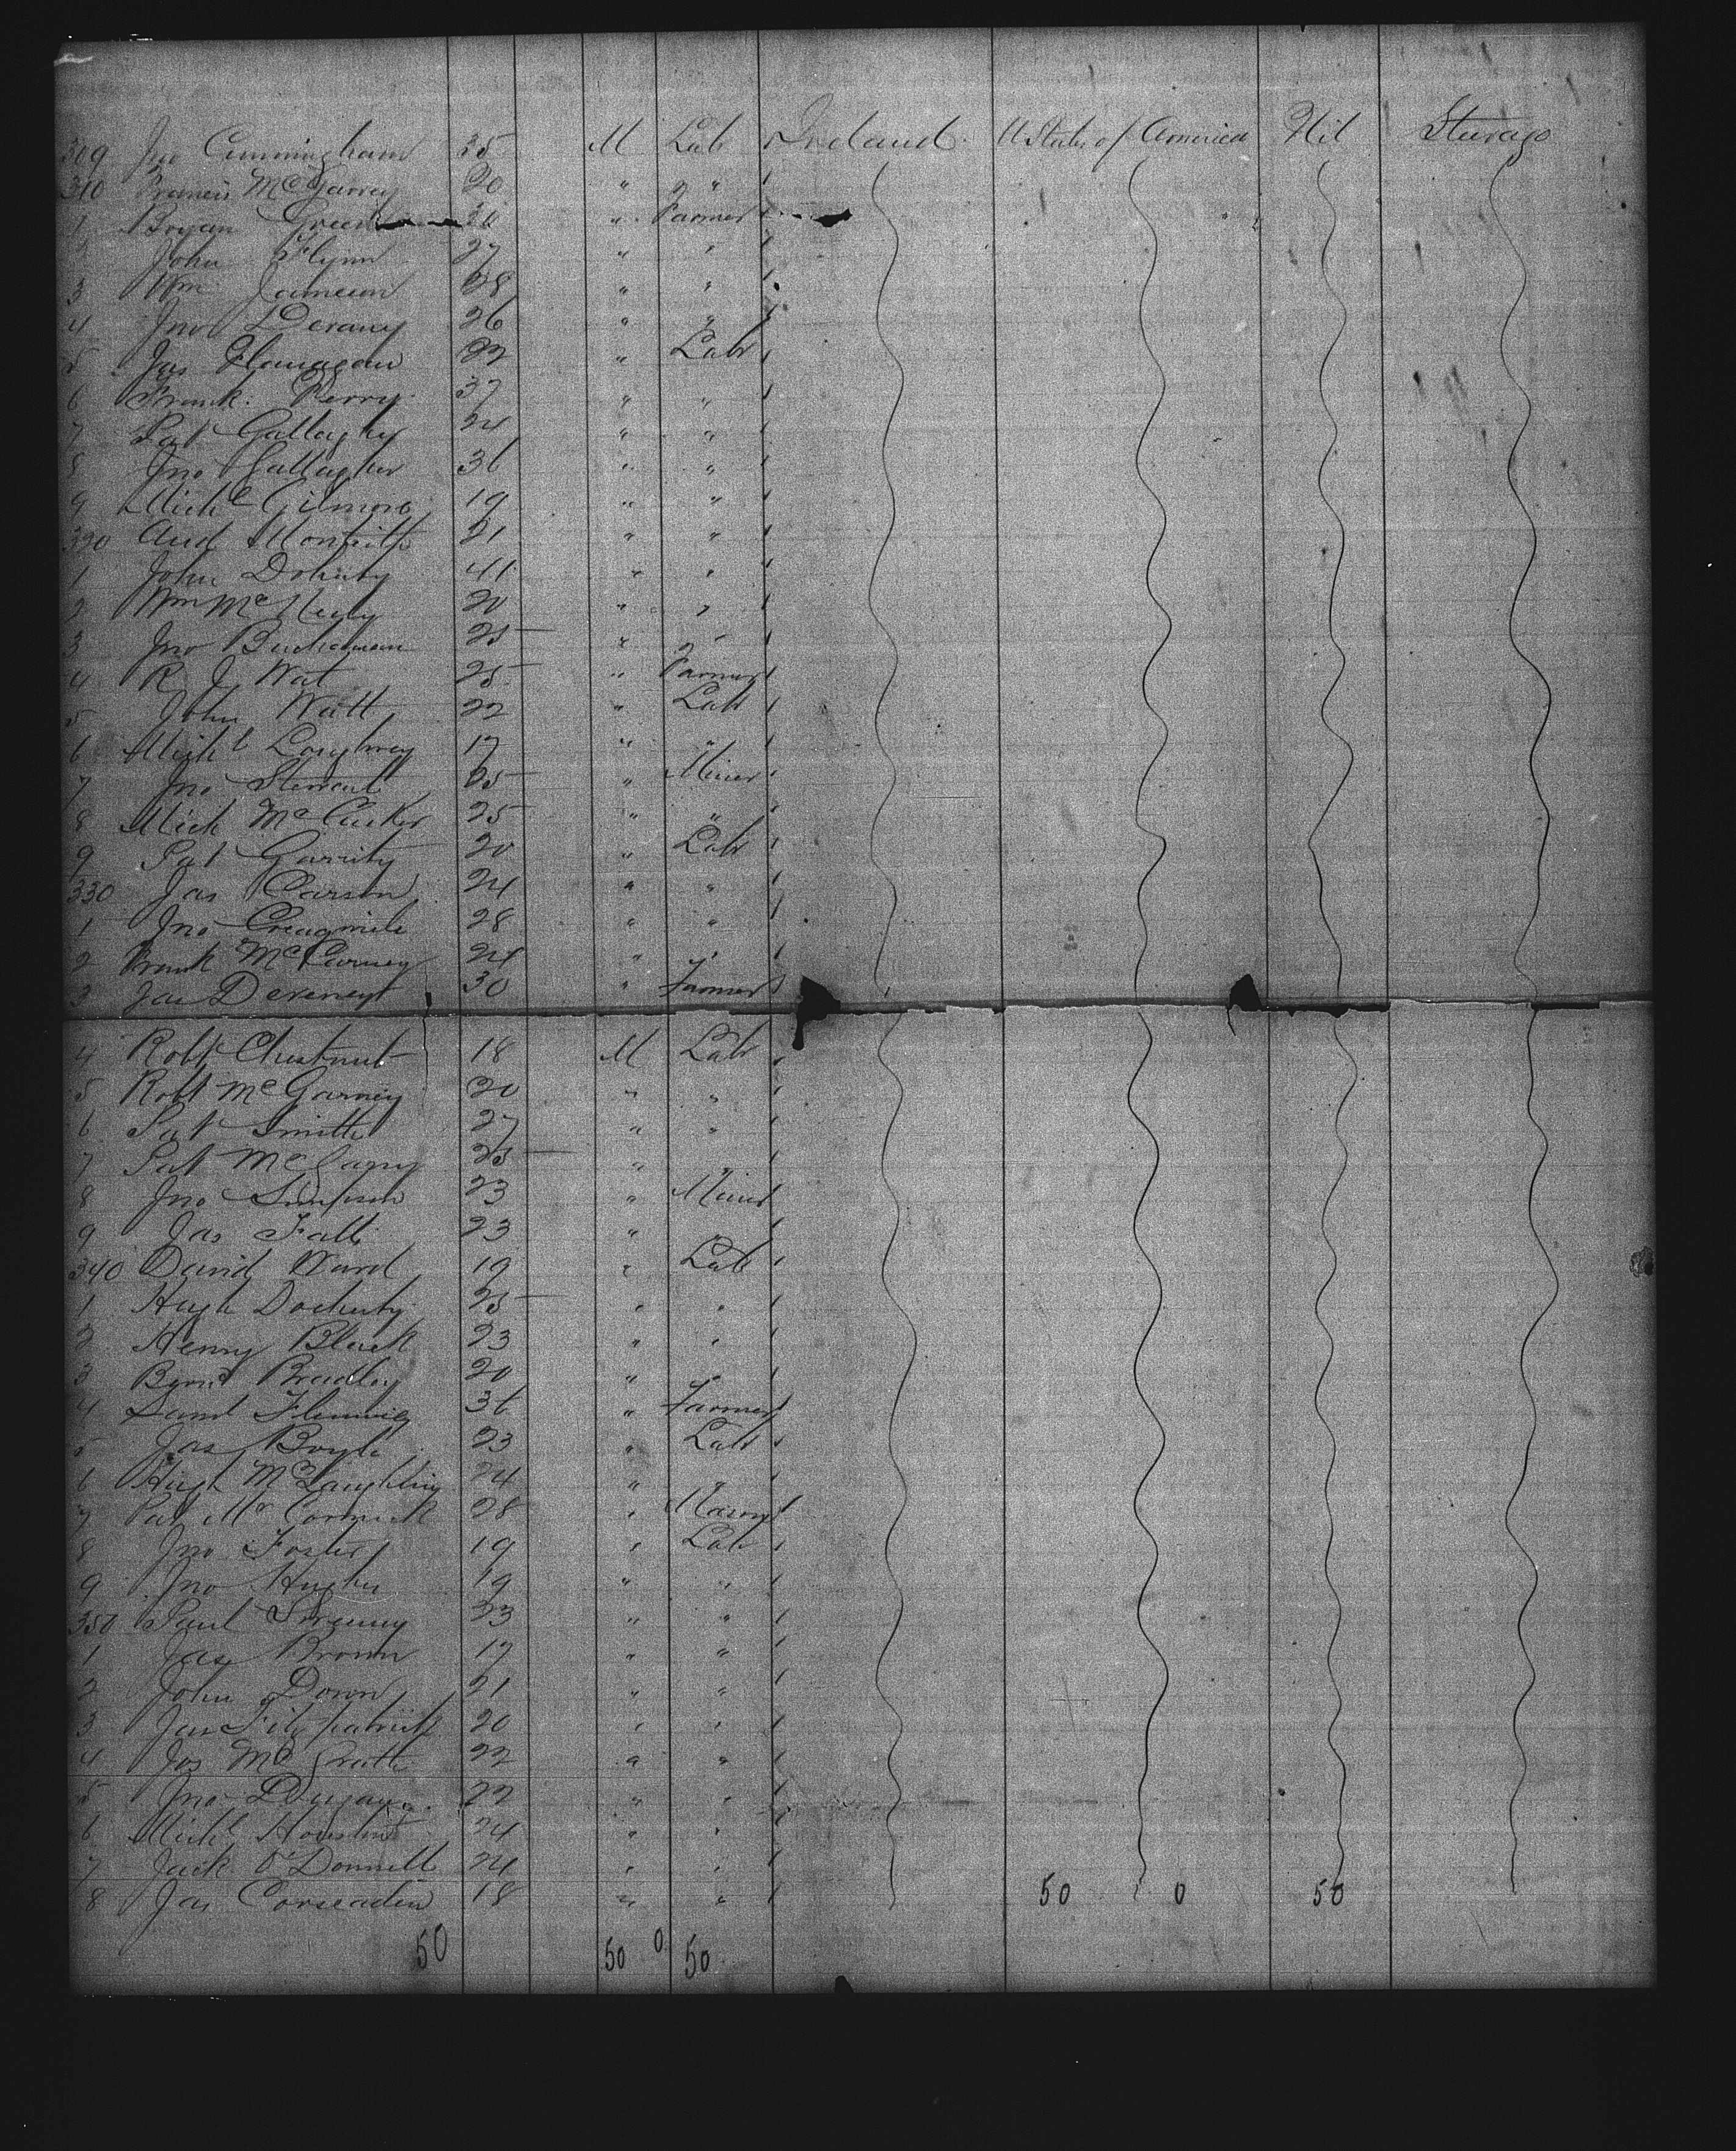 309 Jno Cunningham 25 M Lab Ireland U States of America Nil Steerage
310 Francis McGarvey 20 " "
1 Bryan Green 26 " Farmer
2 John Flynn 27 " "
3 Wm Jameson 28 " "
4 Jno Devany 26 " "
5 Jas Flanagan 22 " Labr
6 Frank Perry 37 " "
7 Pat Gallagher 24 " "
8 Jno Gallagher 36 " "
9 Michl Gilmore 19 " "
320 And Monteith 21 " "
1 John Doherty 41 " "
2 Wm Mc 20 " "
3 Jno Buchanan 25 " "
4 R J Wat 25 " Farmer
5 John Watt 22 " Labr
6 Michl Loughrey 17 " "
7 Jno Stewart 25 " Miner
8 Mich McCusker 25 " "
9 Pat Garrity 20 " Labr
330 Jas Carson 24 " "
1 Jno 28 " "
2 Frank McCarney 24 " "
3 Jas Deveney 30 " Farmer
4 Robt Chestnut 18 M Labr
5 Robt McGarvey 20 " "
6 Pat Smith 27 " "
7 Pat Mc 25 "
8 Jno Simpson 23 " Miner
9 Jas Falls 23 "
340 David Ward 19 " Lab
1 Hugh Docherty 25 " "
2 Henry Black 23 " "
3 Bernd Bradley 20 "
4 Saml Fleming 36 " Farmer
5 Jas Boyle 23 " Labr
6 Hugh McLaughlin 24 " "
7 Pat McCormick 28 " Mason
8 Jno Foster 19 " Lab
9 Jno Hughes 19 " "
350 Paul Sweeney 23 " "
1 Jas Brown 17 " "
2 John Down 21 " "
3 Jas Fitzpatrick 20 " "
4 Jas McGrath 22 " "
5 Jno Dugan 22 " "
6 Michl Houston 24 " "
7 Jack O'Donnell 24 " "
8 Jas 18 " " 50 0 50
50 50 0 50